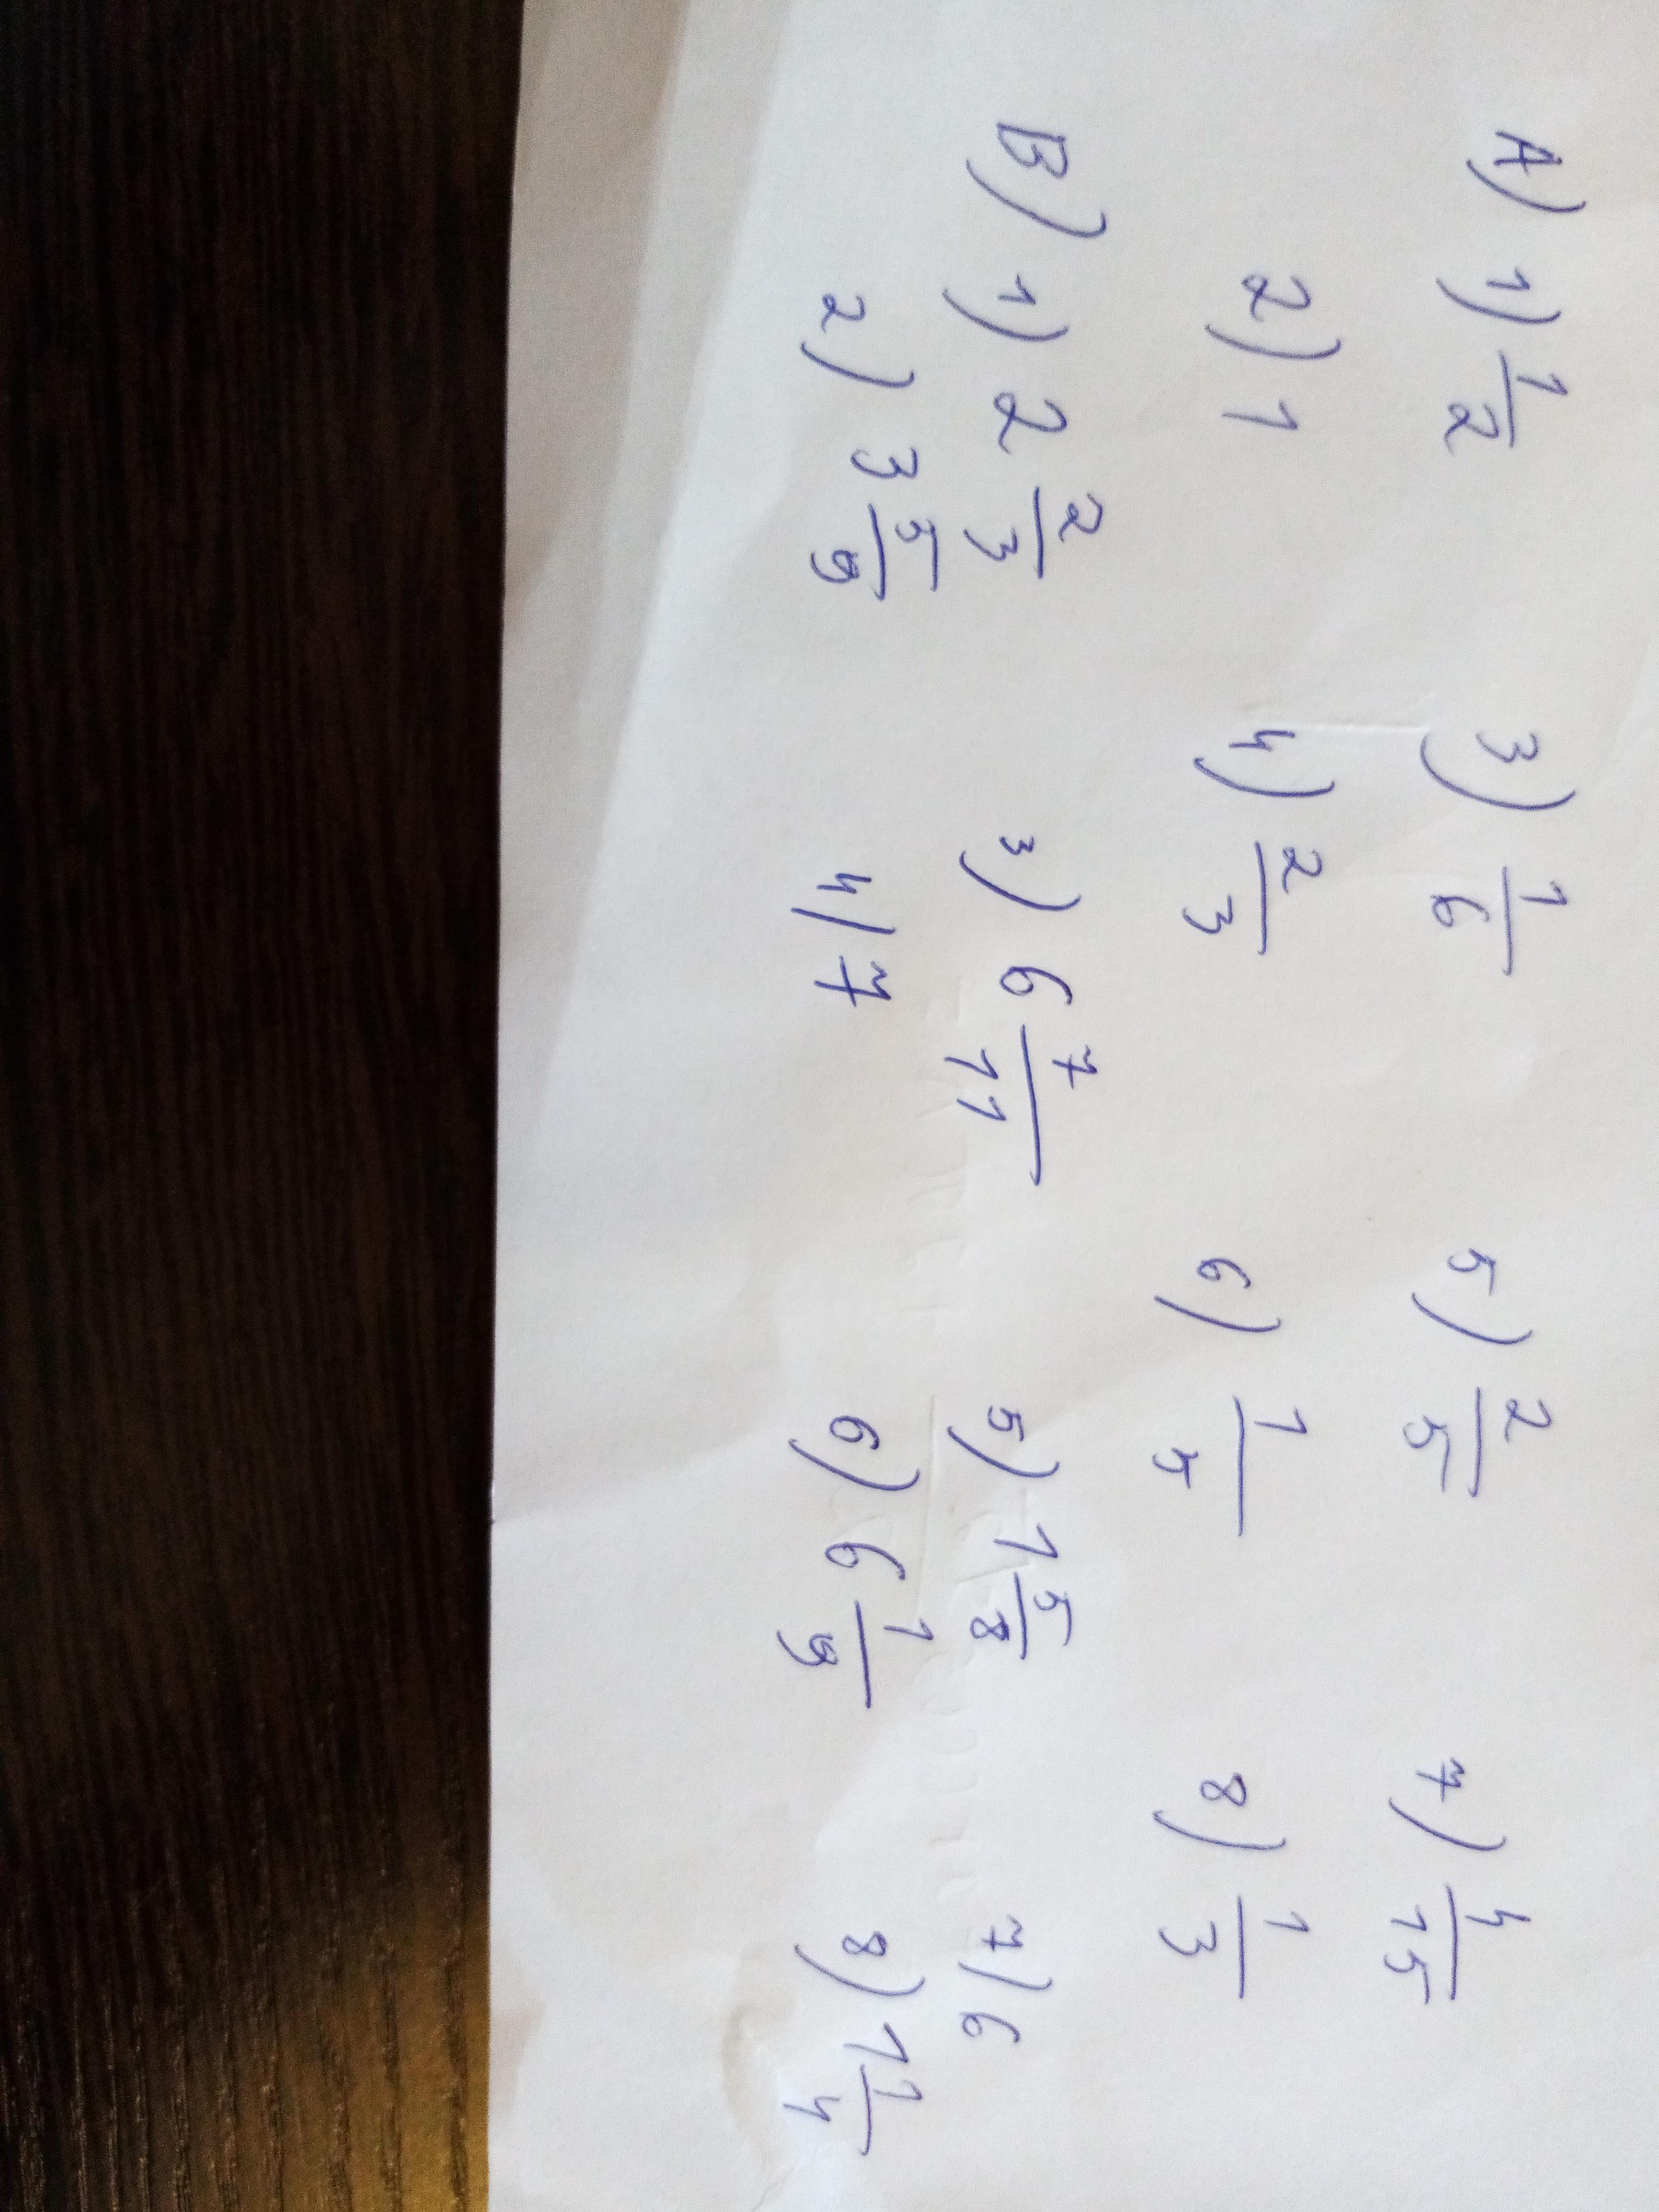 A) 1) 1/2 3) 1/6 5) 2/5 7) 4/15
2) 1 4) 2/3 6) 1/5 8) 1/3
B) 1) 2 2/3 3) 6 7/11 5) 1 5/8 7) 6
2) 3 5/9 4) 7 6) 6 1/9 8) 1 1/4